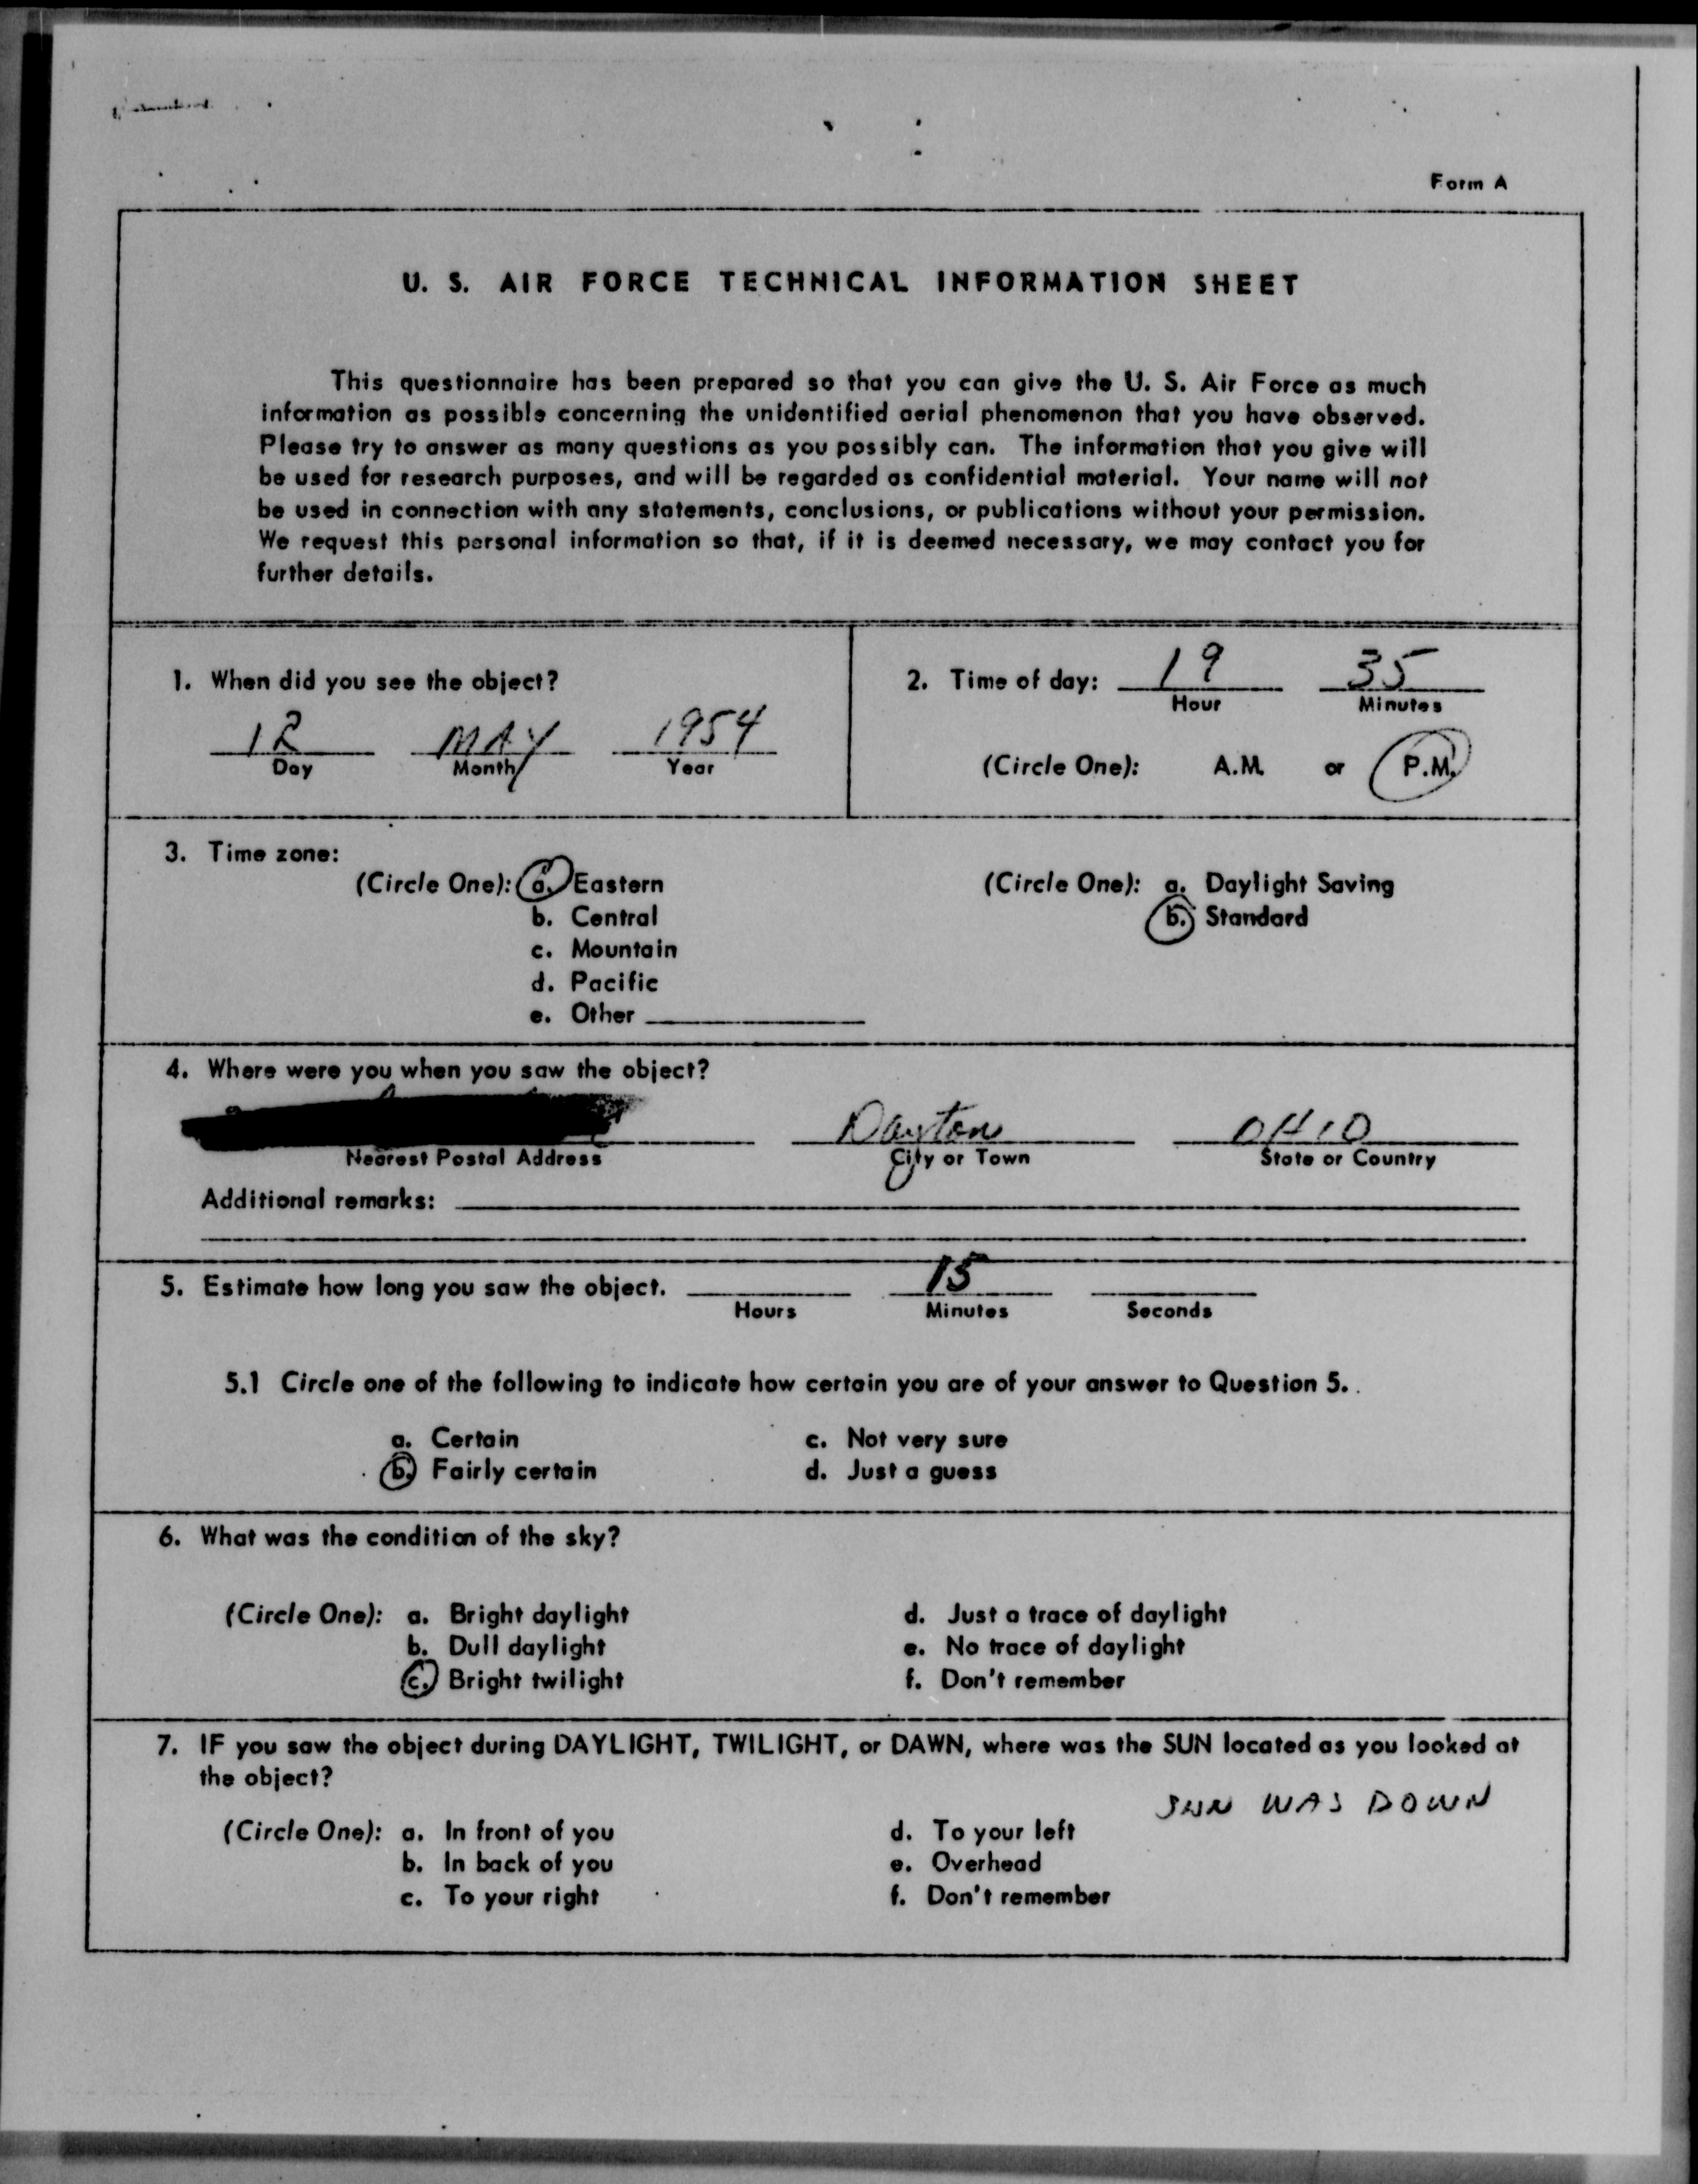 Form A
U. S. AIR FORCE TECHNICAL INFORMATION SHEET
This questionnaire has been prepared so that you can give the U. S. Air Force as much
information as possible concerning the unidentified aerial phenomenon that you have observed.
Please try to answer as many questions as you possibly can. The information that you give will
be used for research purposes, and will be regarded as confidential material. Your name will not
be used in connection with any statements, conclusions, or publications without your permission.
We request this personal information so that, if it is deemed necessary, we may contact you for
further details.
1. When did you see the object?
12 MAY 1954
Day Month Year
2. Time of day: 19 35
Hour Minutes
(Circle One): A.M. or P.M.
3. Time zone:
(Circle One): a. Eastern
b. Central
c. Mountain
d. Pacific
e. Other
(Circle One): a. Daylight Saving
b. Standard
4. Where were you when you saw the object?
Dayton OHIO
Nearest Postal Address City or Town State or Country
Additional remarks:
5. Estimate how long you saw the object. 15
Hours Minutes Seconds
5.1 Circle one of the following to indicate how certain you are of your answer to Question 5.
a. Certain c. Not very sure
b. Fairly certain d. Just a guess
6. What was the condition of the sky?
(Circle One): a. Bright daylight d. Just a trace of daylight
b. Dull daylight e. No trace of daylight
c. Bright twilight f. Don't remember
7. IF you saw the object during DAYLIGHT, TWILIGHT, or DAWN, where was the SUN located as you looked at
the object?
SUN WAS DOWN
(Circle One): a. In front of you d. To your left
b. In back of you e. Overhead
c. To your right f. Don't remember